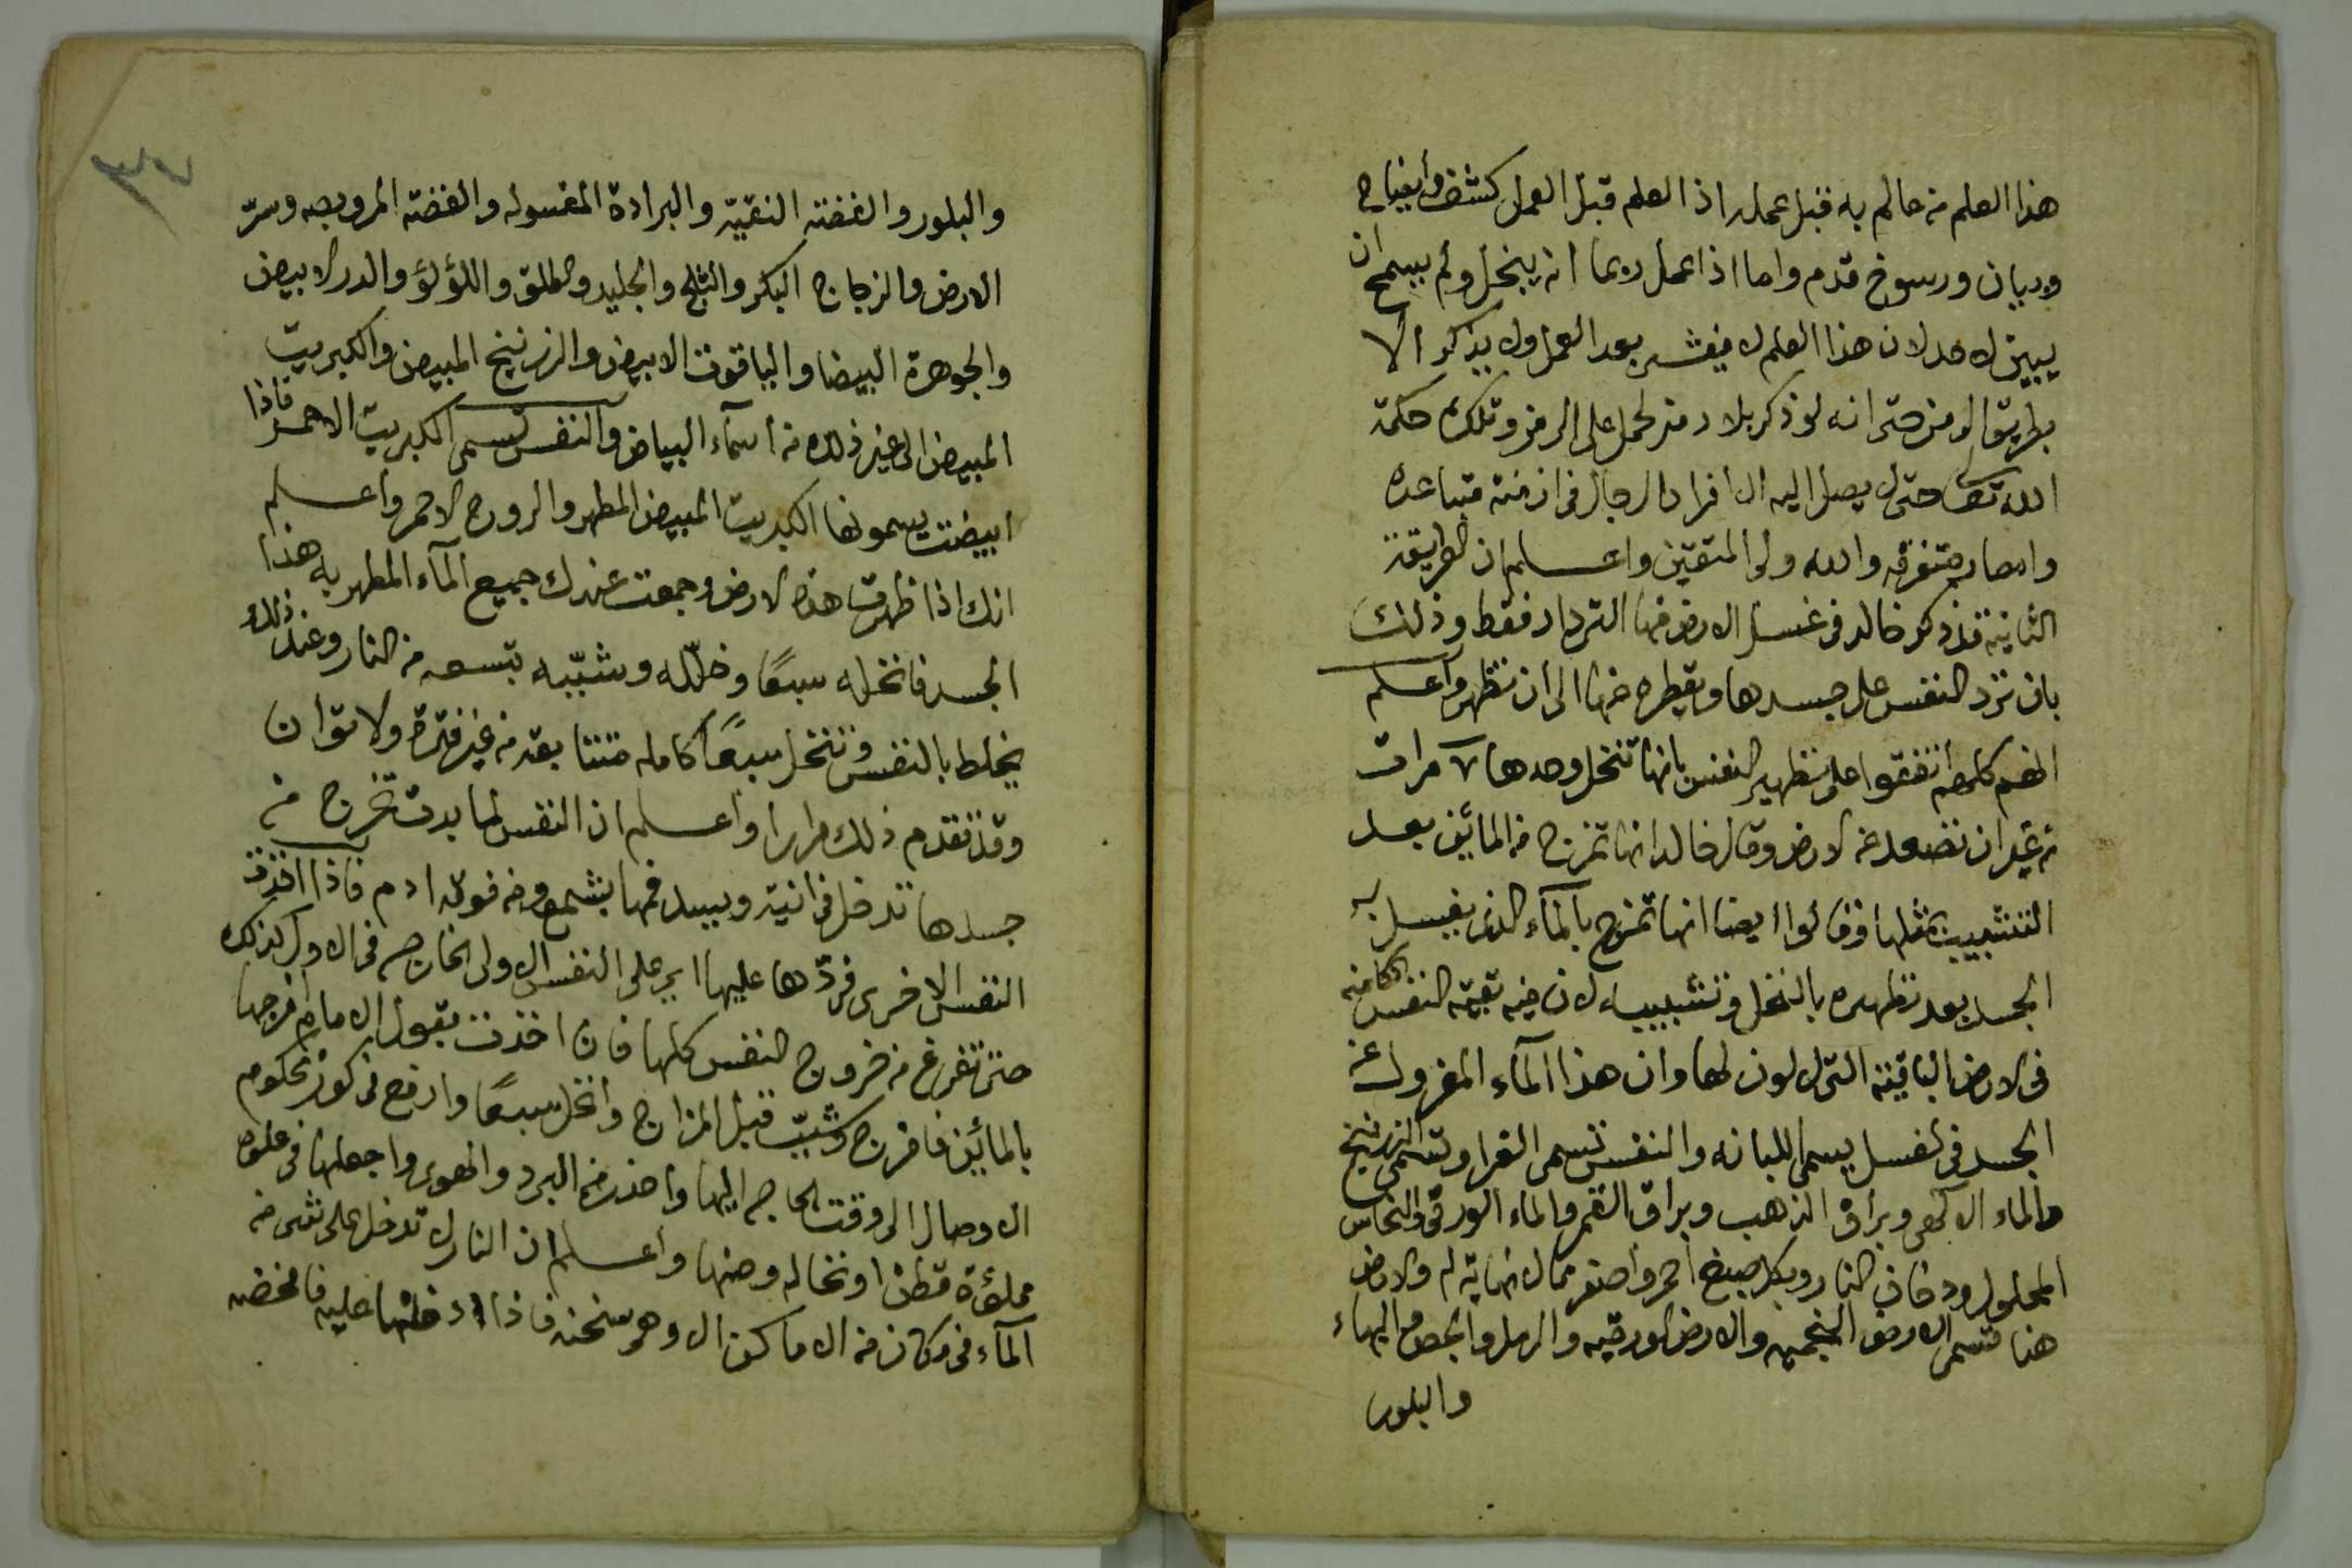 هذا العلم من عالم به قبل عمله اذا العلم قبل العمل كشف وأيضاح
وبيان ورسوخ قدم واما اذا عمل ربما انه يبخل ولم يسمح ان
يبين لاحد لان هذا العلم لا يفشى بعد العمل ولا يذكر الا
بطريق الرمز حتى انه لو ذكر بلا رمز لحمل على الرمز وتلك حكمة
الله تعا حتى لا يصل اليه الا افراد الرجال فى ازمنة متباعده
وامصار متفرقه والله ولى المتقين واعلم ان الطريقة
الثانية قد ذكر خالد فى غسل الارض منها الترداد فقط وذلك
بان ترد النفس على جسدها وتقطره منها الى ان تطهر واعلم
انهم كلهم اتفقوا على تطهير النفس بانها تنخل وحدها ٧ مرات
من غير ان تصعد عن الارض وقال خالد انها تمزج من المائين بعد
التشبيب بمثلها وقالوا ايضا انها تمزج بالمآء الذى يغسل به
الجسد بعد تطهيره بالنخل وتشبيبه لان فيه بقية النفس الكامنه
فى الارض الباقية التى لا لون لها وان هذا المآء المعزول عن
الجسد فى الغسل يسمى اللبانه والنفس تسمى الغرا وتسمى الزرنيخ
والماء الالهى وبراق الذهب وبراق القمر والماء الورقى والنحاس
المحلول ودخان النار وبكل صبغ احمر واصفر مما لا نهاية له والارض
هنا تسمى الارض النجميه والارض الورقيه والرمل والجص والبهاء
والبلور
والبلور والفضة النقية والبرادة المغسوله والفضة المروبصه وسرّ
الارض والزجاج البكر والثلج والجليد والطلق واللؤلؤ والدر الابيض
والجوهرة البيضا والياقوت الابيض والزرنيخ المبيض والكبريت
المبيض الى غير ذلك من اسمآء البياض والنفس تسمى الكبريت الاحمر فاذا
ابيضت يسمونها الكبريت المبيض المطهر والروح الاحمر واعلم
انك اذا طهرت هذه الارض وجمعت عندك جميع المآء المطهر به هذا
الجسد فانخله سبعًا وخلّله وشبّبه بتسعه من النار وعند ذلك
يخلط بالنفس وتنخل سبعًا كامله متتابعة من غير فترة ولا توان
وقد تقدم ذلك مرارا واعلم ان النفس لما بدت تخرج من
جسدها تدخل فى انية ويسد فمها بشمع ومن فوقه ادم فاذا اخذت
النفس الاخرى فردّها عليها اى على النفس الاولى الخارجه فى الاول كذلك
حتى تفرغ من خروج النفس كلها فان اخذت بقول الامام امزجها
بالمائين فامزج وشبّب قبل المزاج وانخل سبعًا وارفع فى كوز محكوم
الاوصال الى وقت الحاجه اليها واحذر من البرد والهوى واجعلها فى علبة
مملؤة قطنا او نخاله وصنها واعلم ان النار لا تدخل على شى من
المآء فى مكان من الاماكن الا وهى سخنه فاذا ادخلتها عليه فامخضه